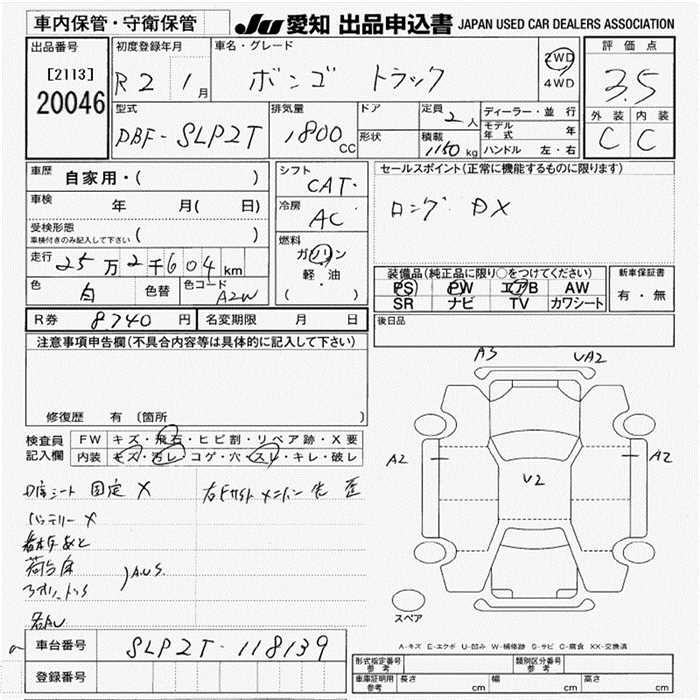 車内保管・守衛保管
JU 愛知 出品申込書 JAPAN USED CAR DEALERS ASSOCIATION
出品番号
[2113]
20046
初度登録年月
R2 1月
車名・グレード
ボンゴ トラック
2WD
4WD
評価点
3.5
外装 内装
C C
型式
DBF-SLP2T
排気量
1800cc
ドア
形状
定員 2人
積載 1150kg
ディーラー・並行
モデル年式 年
ハンドル 左・右
車歴 自家用・( )
車検 年 月( 日)
受検形態
車検付きのみ記入して下さい ( )
走行 25万2千604km
色 白 色替 色コード A2W
シフト
CAT・
冷房
AC
燃料
ガソリン
軽・油
( )
セールスポイント(正常に機能するものに限ります)
ロング DX
装備品(純正品に限り○をつけてください)
PS PW エアB AW
SR ナビ TV カワシート
新車保証書
有・無
R券 8740円 名変期限 月 日
後日品
注意事項申告欄(不具合内容等は具体的に記入して下さい)
修復歴 有 〔箇所 〕
検査員記入欄
FW キズ・飛石・ヒビ割・リペア跡・X要
内装 キズ・汚レ・コゲ・穴・スレ・キレ・破レ
固定 X
バッテリー X
荷台
AUS.
A3 UA2
A2 A2
U2
スペア
A-キズ E-エクボ U-凹み W-補修跡 S-サビ C-腐食 XX-交換済
車台番号 SLP2T-118139
登録番号
形式指定番号 参考
類別区分番号 参考
車庫証明用 参考 長さ cm 幅 cm 高さ cm